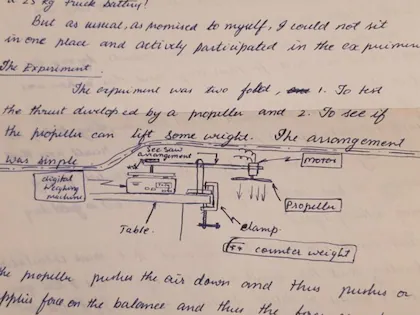 a 25 kg truck battery!
But as usual, as promised to myself, I could not sit
in one place and actively participated in the experimen
The Experiment
The experiment was two fold, 1. To test
the thrust devloped by a propeller and 2. To see if
the propeller can lift some weight. The arrangement
was simple
See saw
arrangement
motor
digital
weighing
machine
Propeller
Table.
clamp
counter weight
the propeller pushes the air down and thus pushes or
applies force on the balance and thus the force